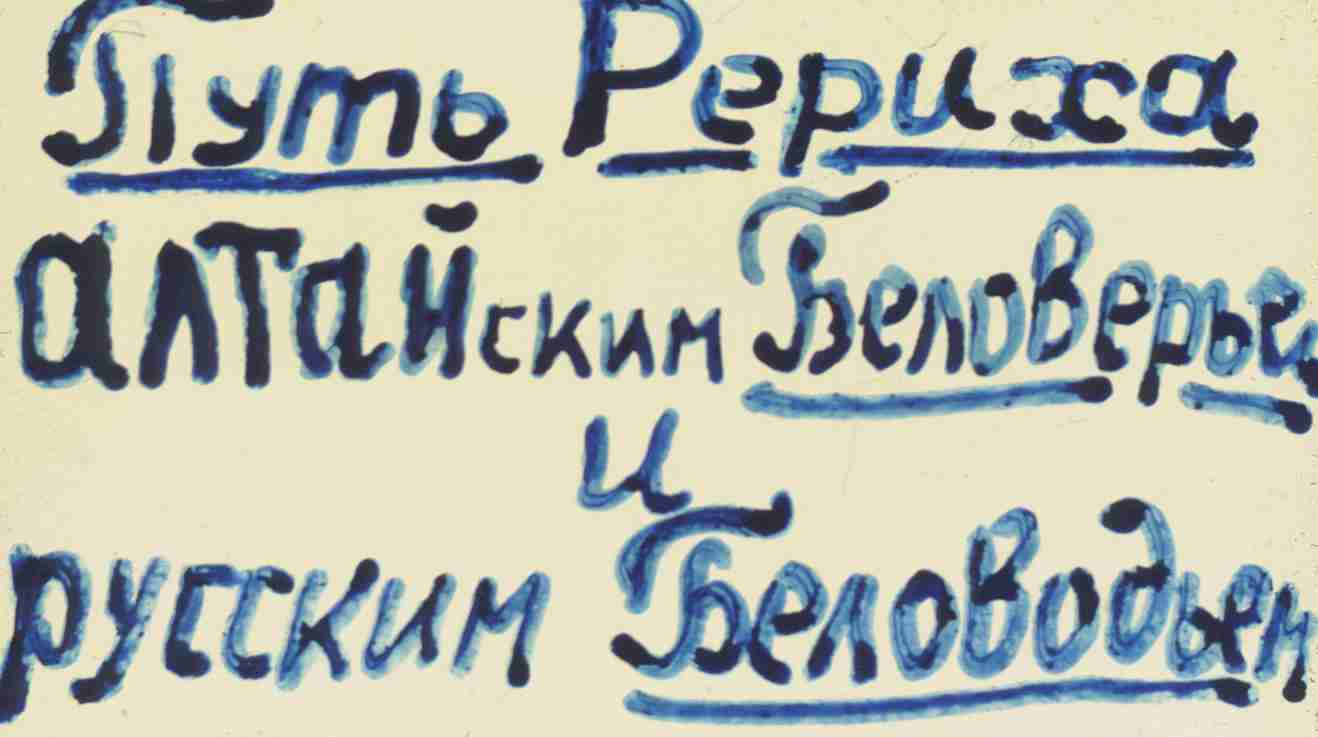 Путь Рериха
алтайским Беловерьем
и
русским Беловодьем